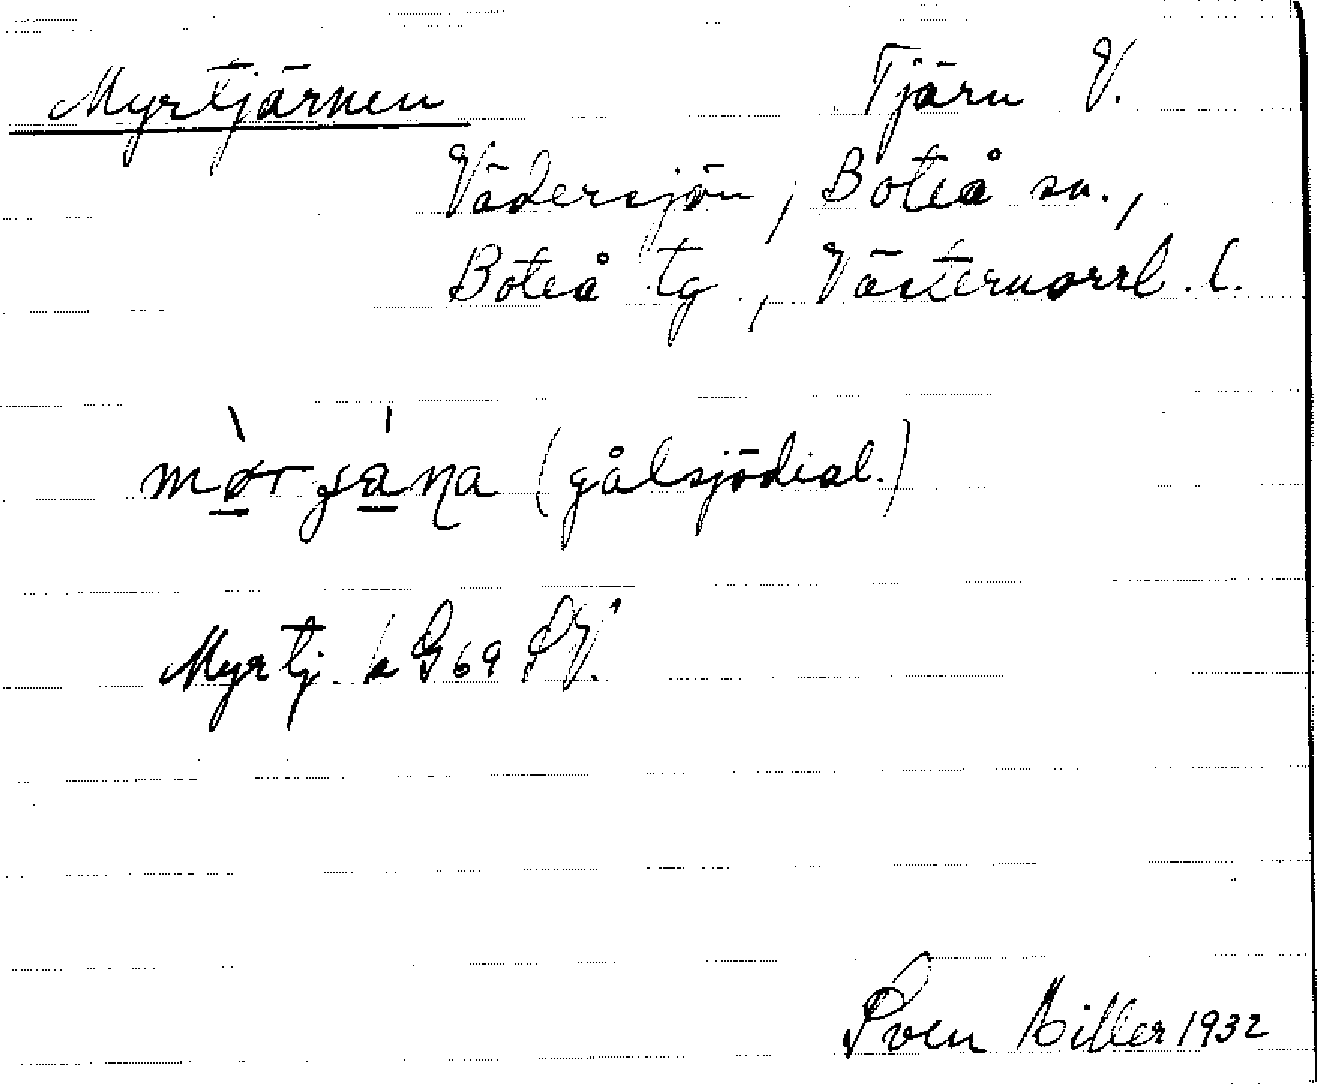 Myrtjärnen Tjärn V.
Vädersjön, Boteå sn.,
Boteå tg., Västernorrl. l.
(gålsjödial.)
Myrtj. k G 69 SV.
Sven 1932